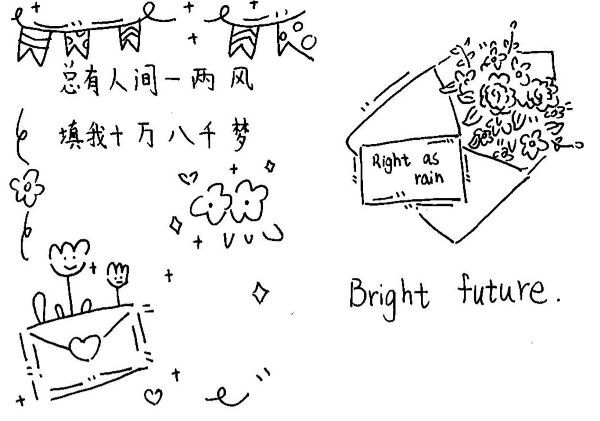 总有人间一两风
填我十万八千梦
Right as
rain
Bright future.